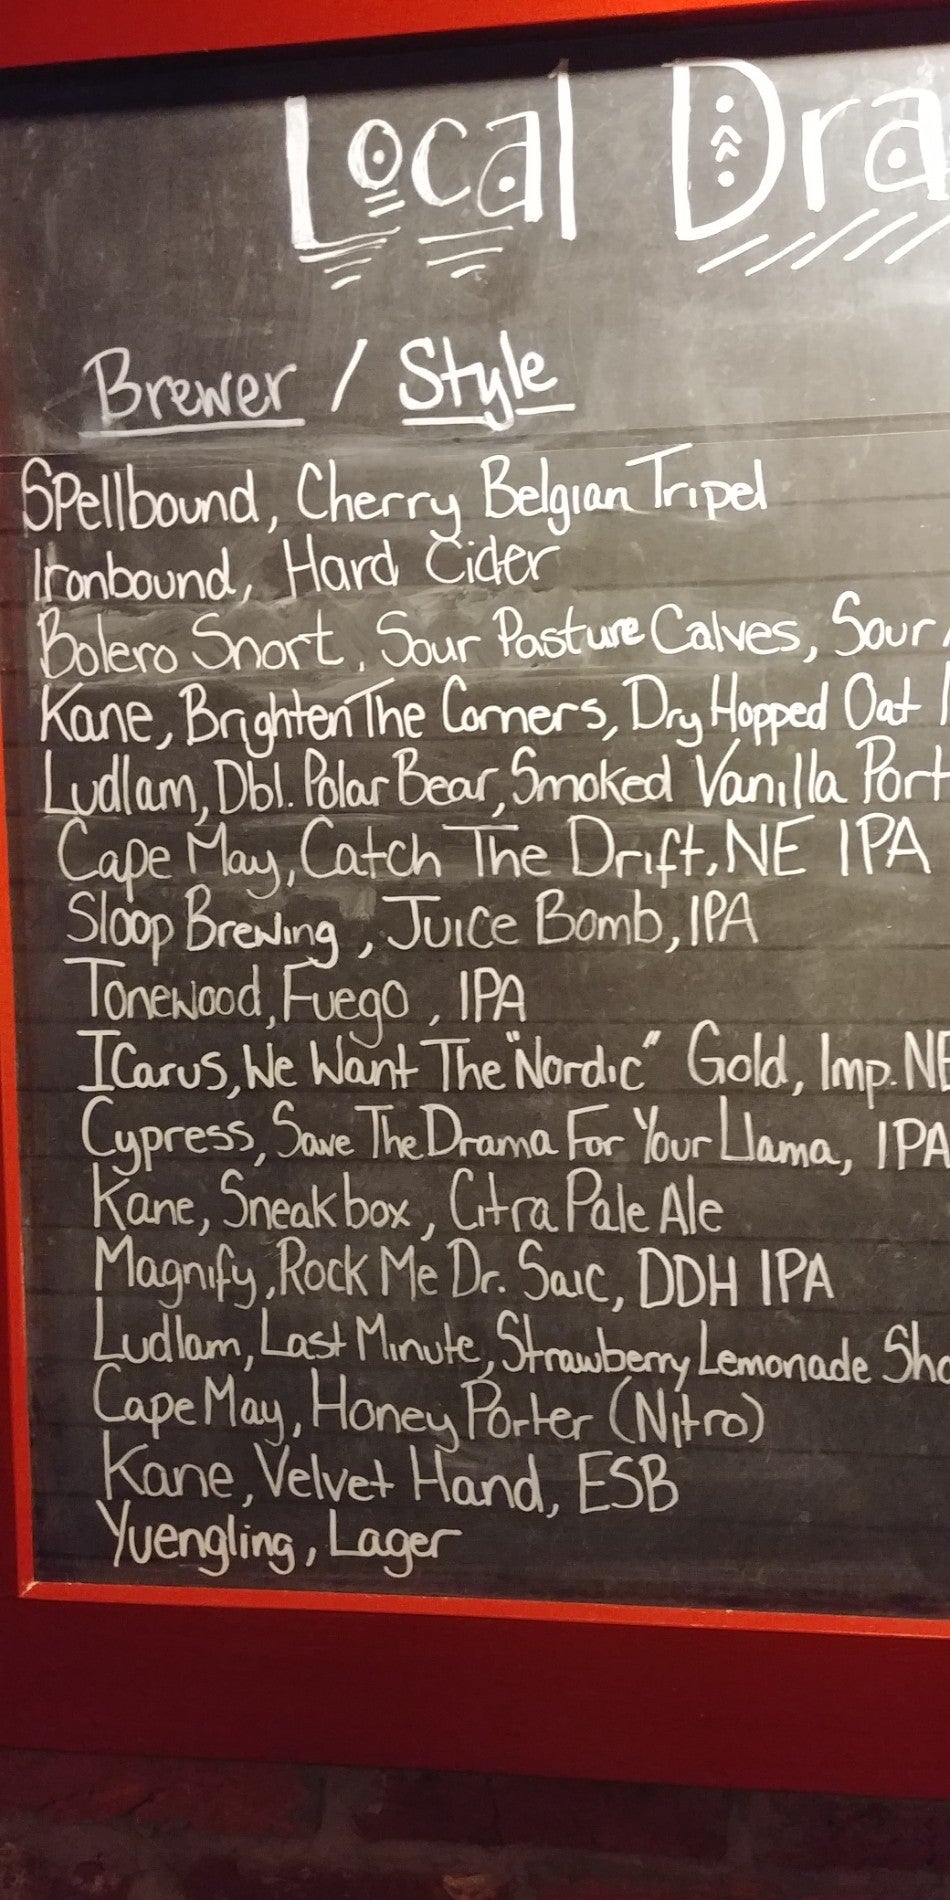 Local Dra
Brewer / Style
Spellbound, Cherry Belgian Tripel
Ironbound, Hard Cider
Bolero Snort, Sour Pasture Calves, Sour,
Kane, Brighten The Corners, Dry Hopped Oat
Ludlam, Dbl. Polar Bear, Smoked Vanilla Port
Cape May, Catch The Drift, NE IPA
Sloop Brewing, Juice Bomb, IPA
Tonewood, Fuego, IPA
Icarus, We Want The "Nordic" Gold, Imp. NE
Cypress, Save The Drama For Your Llama, IPA
Kane, Sneakbox, Citra Pale Ale
Magnify, Rock Me Dr. Saic, DDH IPA
Ludlam, Last Minute, Strawberry Lemonade Sha
Cape May, Honey Porter (Nitro)
Kane, Velvet Hand, ESB
Yuengling, Lager